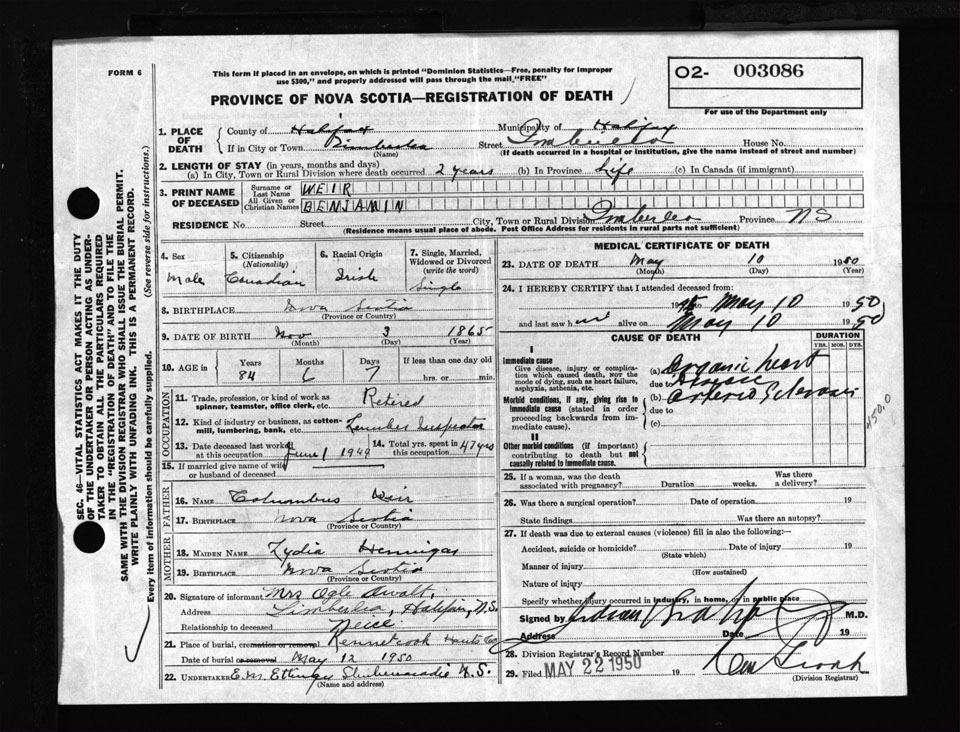 FORM 6
This form if placed in an envelope, on which is printed "Dominion Statistics—Free, penalty for improper
use $300," and properly addressed will pass through the mail "FREE"
PROVINCE OF NOVA SCOTIA—REGISTRATION OF DEATH
02- 003086
For use of the Department only
SEC. 46—VITAL STATISTICS ACT MAKES IT THE DUTY
OF THE UNDERTAKER OR PERSON ACTING AS UNDER-
TAKER TO OBTAIN ALL THE PARTICULARS REQUIRED
IN THE "REGISTRATION OF DEATH" AND TO FILE THE
SAME WITH THE DIVISION REGISTRAR WHO SHALL ISSUE THE BURIAL PERMIT.
WRITE PLAINLY WITH UNFADING INK. THIS IS A PERMANENT RECORD.
Every item of information should be carefully supplied. (See reverse side for instructions.)
1. PLACE OF DEATH
County of Halifax Municipality of Halifax
If in City or Town Timberlea Street Timberlea House No.
(Name) (If death occurred in a hospital or institution, give the name instead of street and number)
2. LENGTH OF STAY (in years, months and days)
(a) In City, Town or Rural Division where death occurred 2 years (b) In Province Life (c) In Canada (if immigrant)
3. PRINT NAME OF DECEASED
Surname or Last Name WEIR
All Given or Christian Names BENJAMIN
RESIDENCE No. Street City, Town or Rural Division Timberlea Province NS
(Residence means usual place of abode. Post Office Address for residents in rural parts not sufficient)
4. Sex Male
5. Citizenship (Nationality) Canadian
6. Racial Origin Irish
7. Single, Married, Widowed or Divorced (write the word) Single
8. BIRTHPLACE Nova Scotia
(Province or Country)
9. DATE OF BIRTH Nov 3 1865
(Month) (Day) (Year)
10. AGE IN Years 84 Months 6 Days 7 If less than one day old hrs. or min.
OCCUPATION
11. Trade, profession, or kind of work as spinner, teamster, office clerk, etc. Retired
12. Kind of industry or business, as cotton-mill, lumbering, bank, etc. Lumber Inspector
13. Date deceased last worked at this occupation June 1 1949
14. Total yrs. spent in this occupation 47 yrs
15. If married give name of wife or husband of deceased
FATHER
16. NAME Columbus Weir
17. BIRTHPLACE Nova Scotia
(Province or Country)
MOTHER
18. MAIDEN NAME Lydia Hennigar
19. BIRTHPLACE Nova Scotia
(Province or Country)
20. Signature of informant Mrs Ogle Awalt,
Address Timberlea, Halifax, N.S.
Relationship to deceased Neice
21. Place of burial, cremation or removal Kennetcook Hants Co
Date of burial or removal May 12 1950
22. UNDERTAKER E.M. Ettinger Shubenacadie N.S.
(Name and Address)
MEDICAL CERTIFICATE OF DEATH
23. DATE OF DEATH May 10 1950
(Month) (Day) (Year)
24. I HEREBY CERTIFY that I attended deceased from:
19 to May 10 1950
and last saw h alive on May 10 1950
CAUSE OF DEATH
DURATION
YRS. MOS. DYS.
I
Immediate cause
Give disease, injury or complication which caused death, NOT the mode of dying, such as heart failure, asphyxia, asthenia, etc.
(a) Organic heart
due to Disease
Morbid conditions, if any, giving rise to immediate cause (stated in order proceeding backwards from immediate cause).
(b) Arterio Sclerosis
due to
(c)
450.0
II
Other morbid conditions (if important) contributing to death but not causally related to immediate cause.
25. If a woman, was the death associated with pregnancy? Duration weeks. Was there a delivery?
26. Was there a surgical operation? Date of operation 19
State findings Was there an autopsy?
27. If death was due to external causes (violence) fill in also the following:—
Accident, suicide or homicide? Date of injury 19
(State which)
Manner of injury
(How sustained)
Nature of injury
Specify whether injury occurred in industry, in home, or in public place
Signed by M.D.
Address Date 19
28. Division Registrar's Record Number
29. Filed MAY 22 1950 19
(Division Registrar)